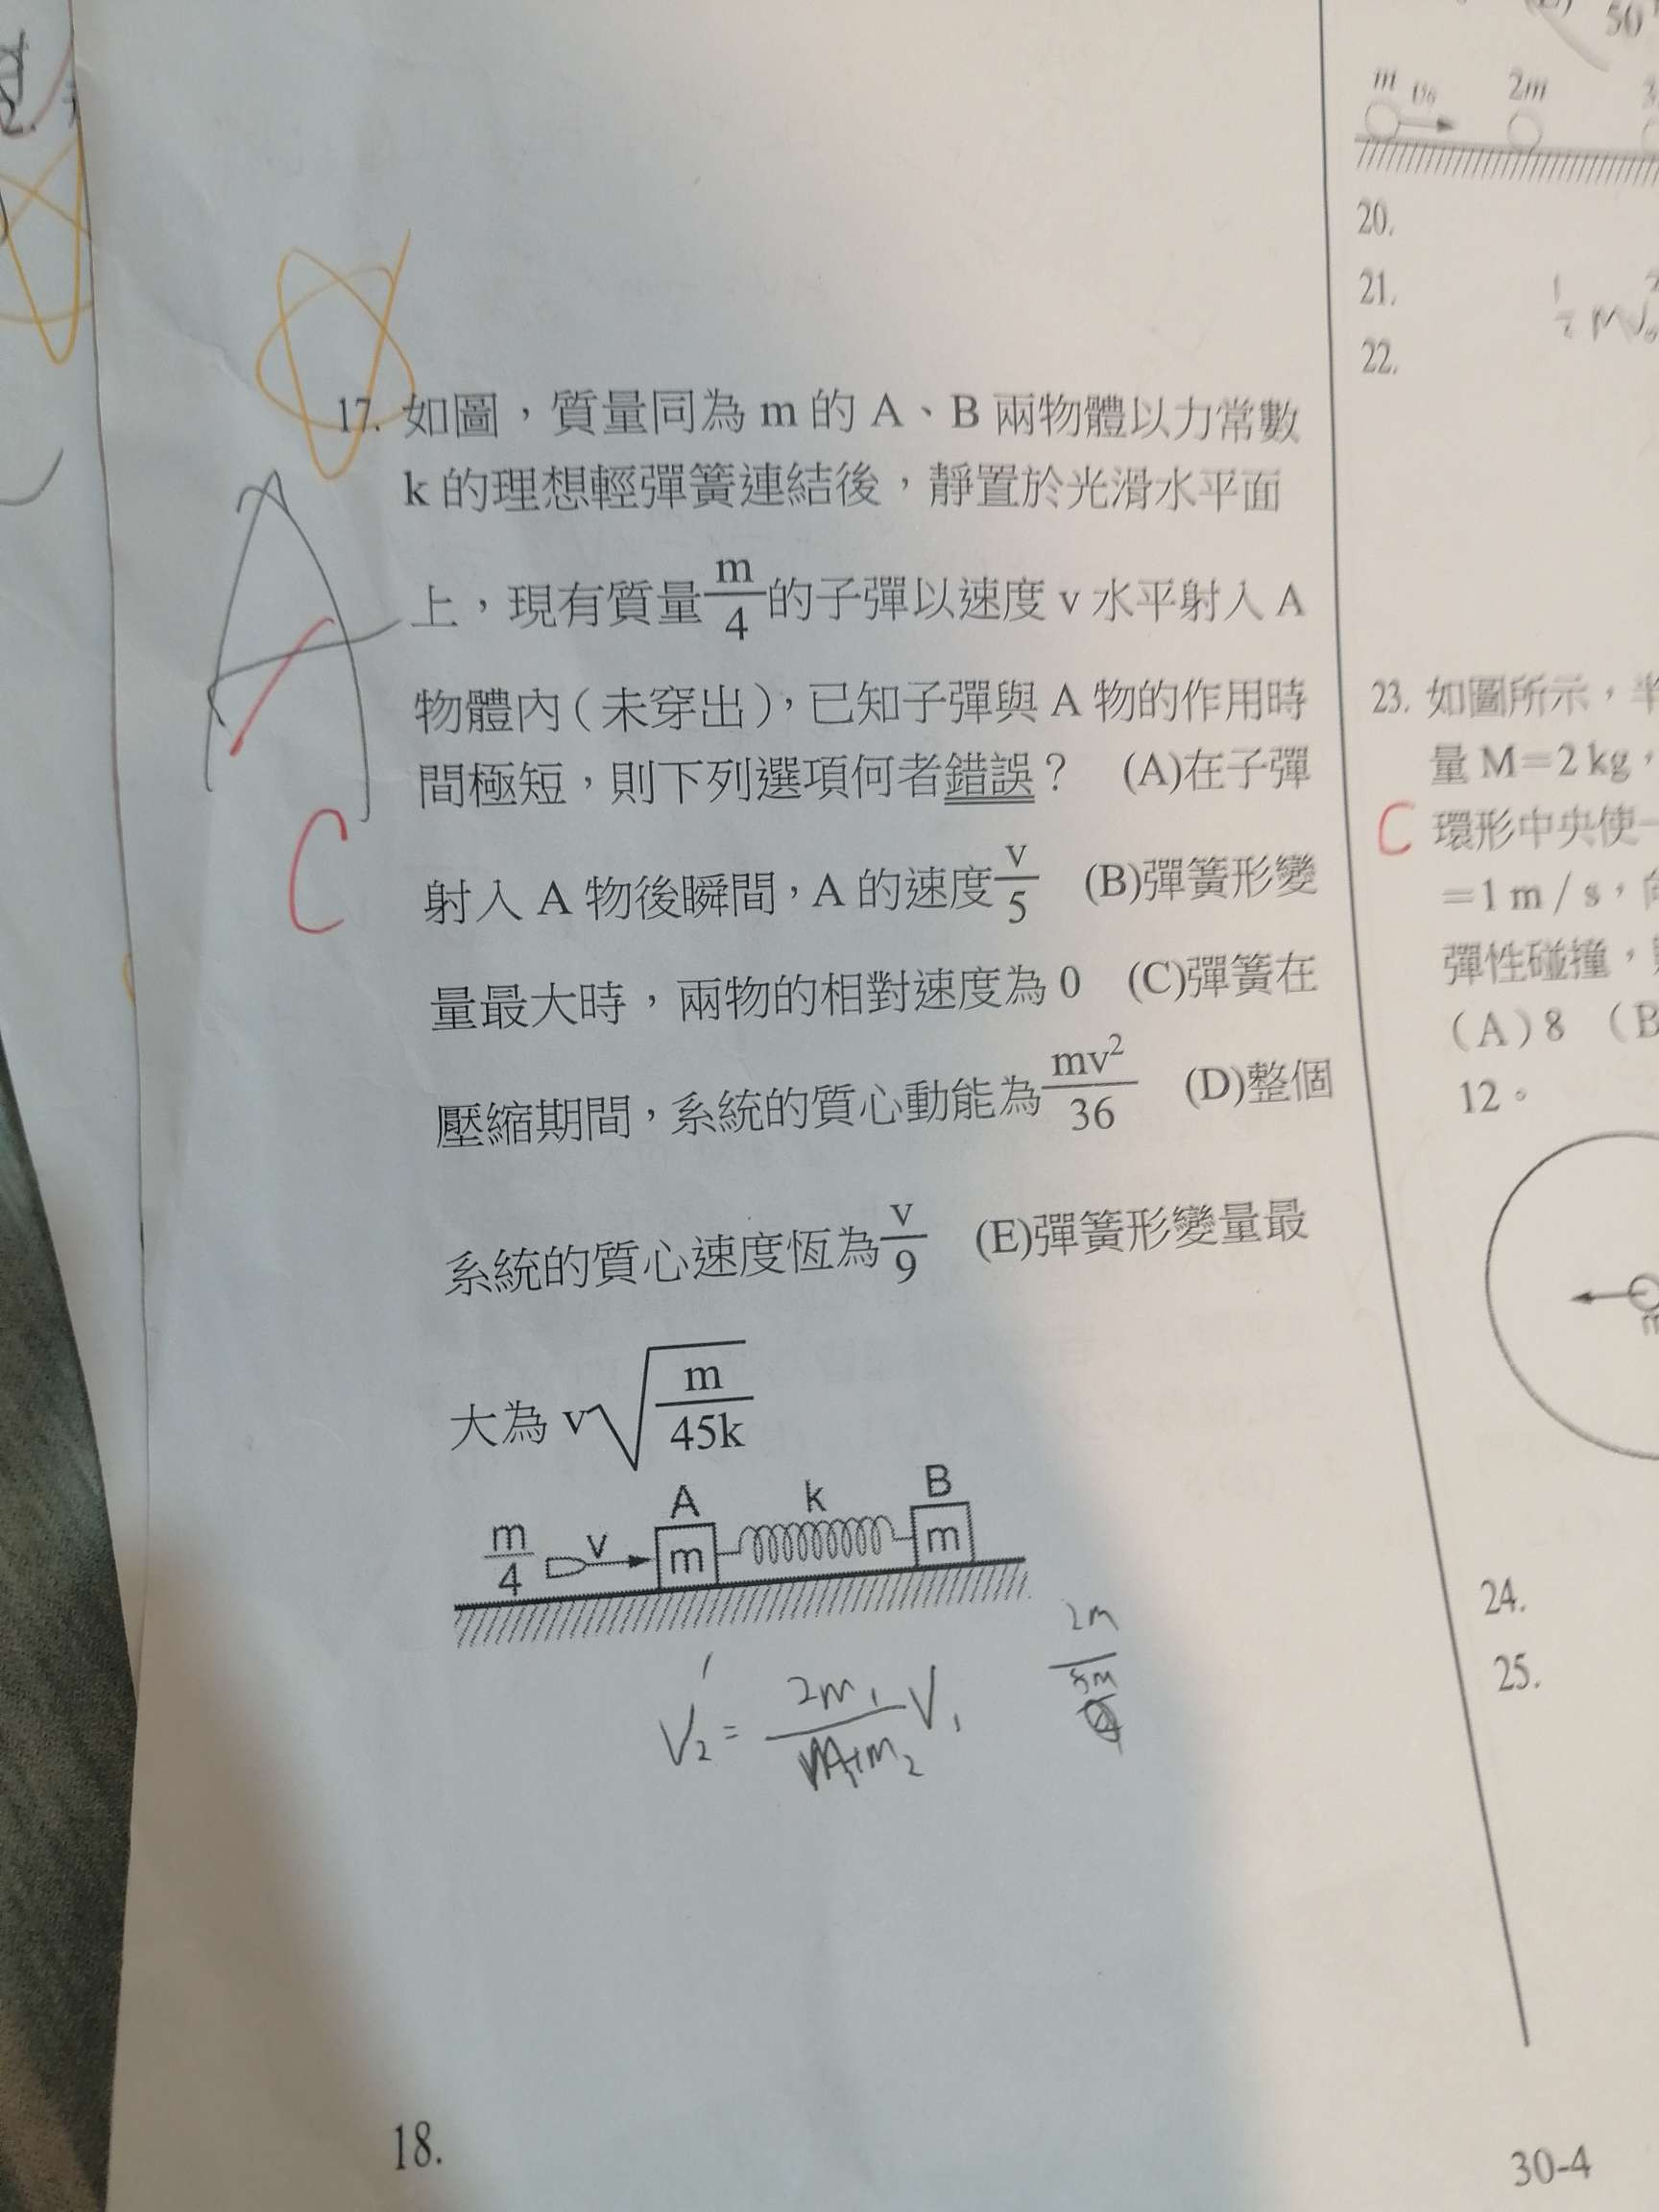 17. 如圖，質量同為 m 的 A、B 兩物體以力常數
k 的理想輕彈簧連結後，靜置於光滑水平面
上，現有質量 m/4 的子彈以速度 v 水平射入 A
物體內（未穿出），已知子彈與 A 物的作用時
間極短，則下列選項何者錯誤？ (A)在子彈
射入 A 物後瞬間，A 的速度 v/5 (B)彈簧形變
量最大時，兩物的相對速度為 0 (C)彈簧在
壓縮期間，系統的質心動能為 mv²/36 (D)整個
系統的質心速度恆為 v/9 (E)彈簧形變量最
大為 v√(m/45k)
A
C
m/4 v A m k B m
V₂' = 2m₁/(m₁+m₂) V₁
18.
50
m v₀ 2m
20.
21.
22.
23. 如圖所示，半
量 M=2 kg，
C
環形中央使一
=1 m / s，向
彈性碰撞，
(A) 8 (B
12。
24.
25.
30-4